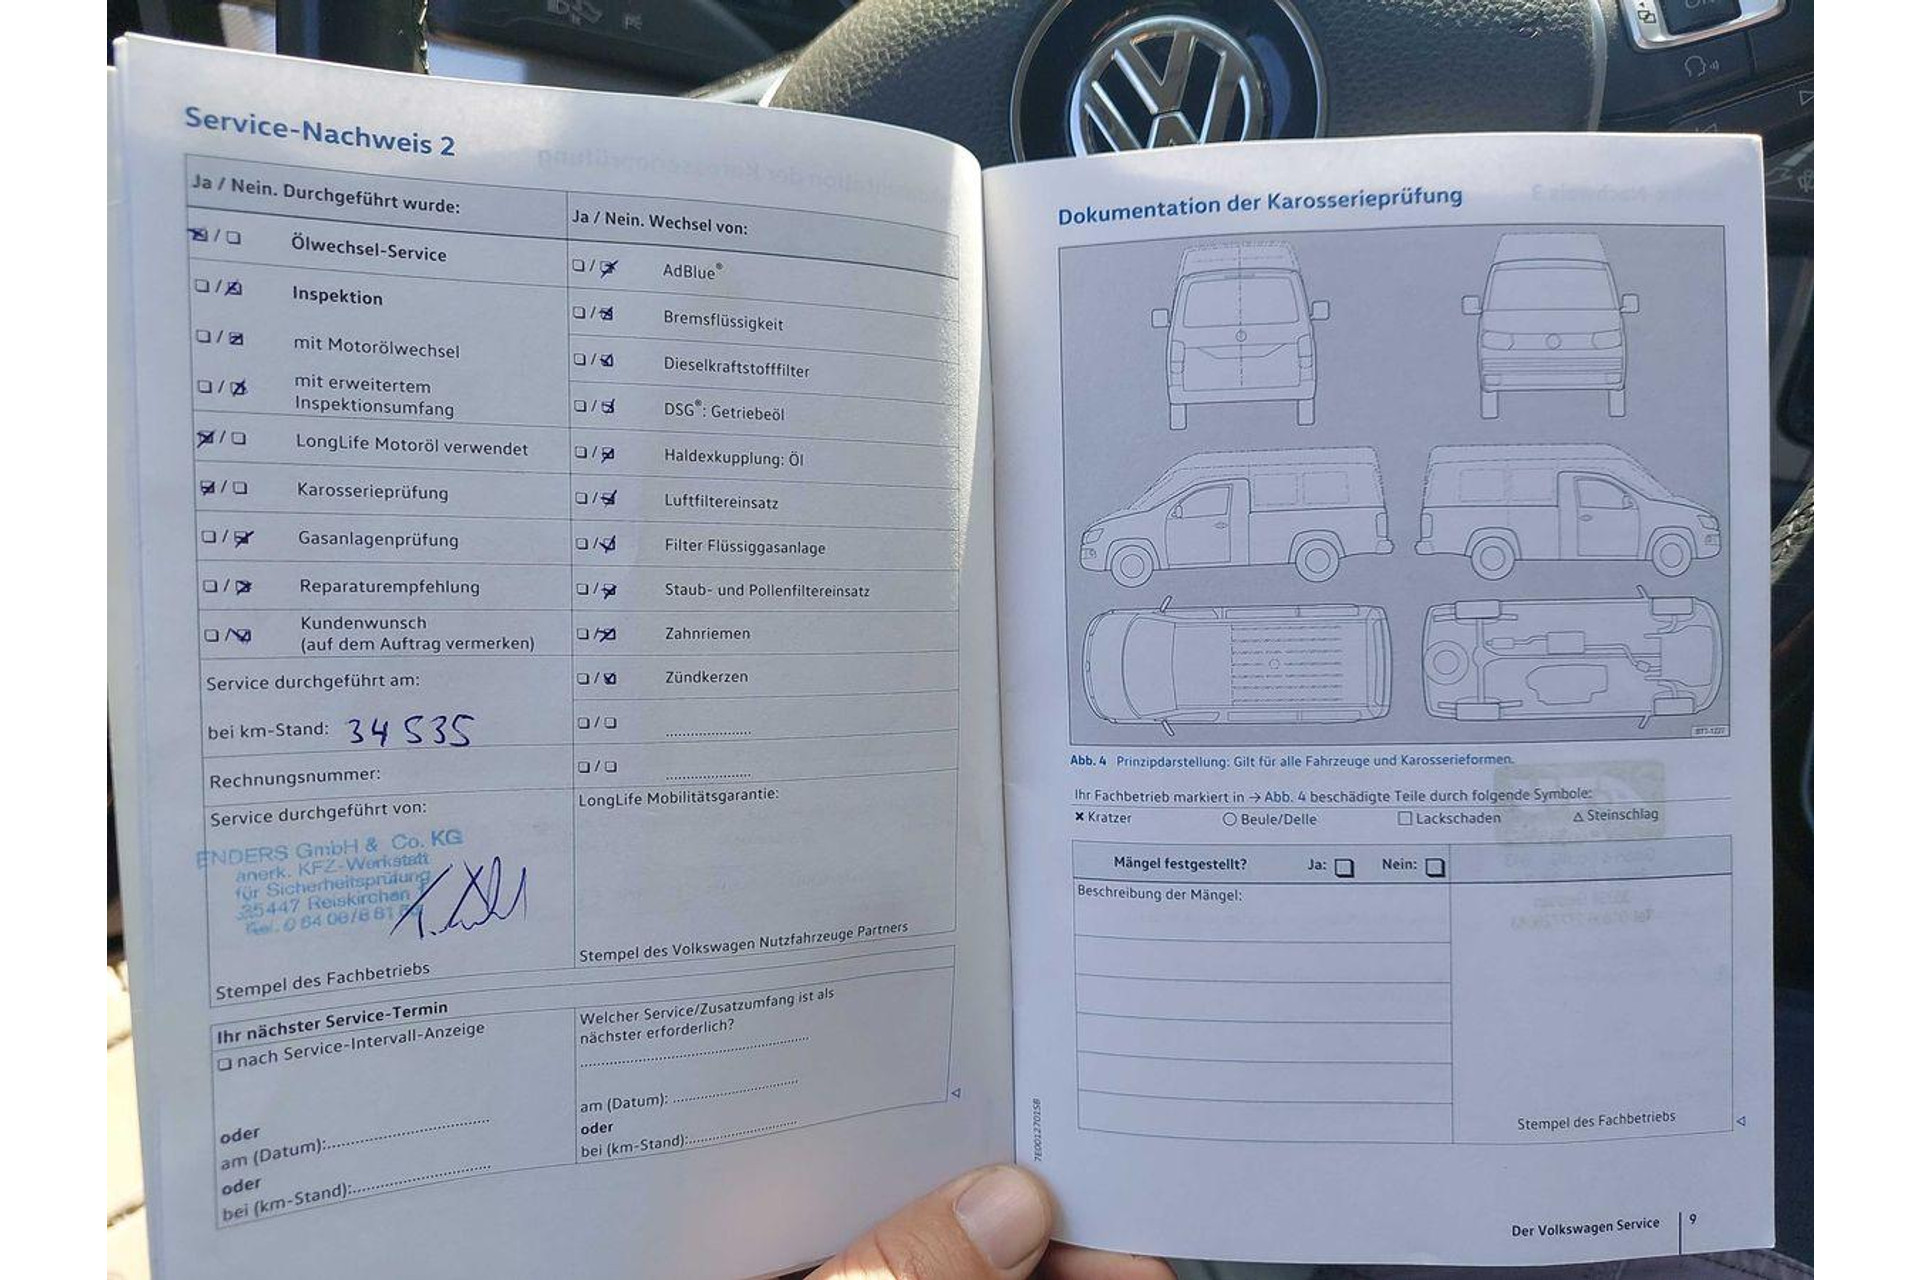 Service-Nachweis 2
Ja / Nein. Durchgeführt wurde:
Ölwechsel-Service
Inspektion
mit Motorölwechsel
mit erweitertem
Inspektionsumfang
LongLife Motoröl verwendet
Karosserieprüfung
Gasanlagenprüfung
Reparaturempfehlung
Kundenwunsch
(auf dem Auftrag vermerken)
Service durchgeführt am:
bei km-Stand: 34 535
Rechnungsnummer:
Service durchgeführt von:
ENDERS GmbH & Co. KG
anerk. KFZ-Werkstatt
für Sicherheitsprüfung
35447 Reiskirchen
Tel. 0 64 08/6 61
Stempel des Fachbetriebs
Ja / Nein. Wechsel von:
AdBlue®
Bremsflüssigkeit
Dieselkraftstofffilter
DSG®: Getriebeöl
Haldexkupplung: Öl
Luftfiltereinsatz
Filter Flüssiggasanlage
Staub- und Pollenfiltereinsatz
Zahnriemen
Zündkerzen
LongLife Mobilitätsgarantie:
Stempel des Volkswagen Nutzfahrzeuge Partners
Ihr nächster Service-Termin
nach Service-Intervall-Anzeige
oder
am (Datum):
oder
bei (km-Stand):
Welcher Service/Zusatzumfang ist als
nächster erforderlich?
am (Datum):
oder
bei (km-Stand):
Dokumentation der Karosserieprüfung
Abb. 4 Prinzipdarstellung: Gilt für alle Fahrzeuge und Karosserieformen.
Ihr Fachbetrieb markiert in → Abb. 4 beschädigte Teile durch folgende Symbole:
× Kratzer ○ Beule/Delle □ Lackschaden △ Steinschlag
Mängel festgestellt? Ja: Nein:
Beschreibung der Mängel:
Stempel des Fachbetriebs
7E0012701SB
Der Volkswagen Service 9